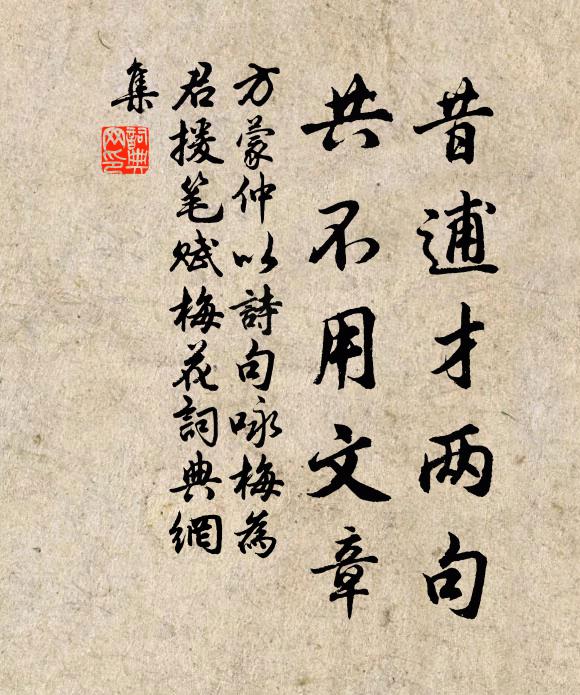 昔逋才两句
共不用文章
方蒙仲以詩句咏梅為
君援笔赋梅花詞典網
集
詞典
网印